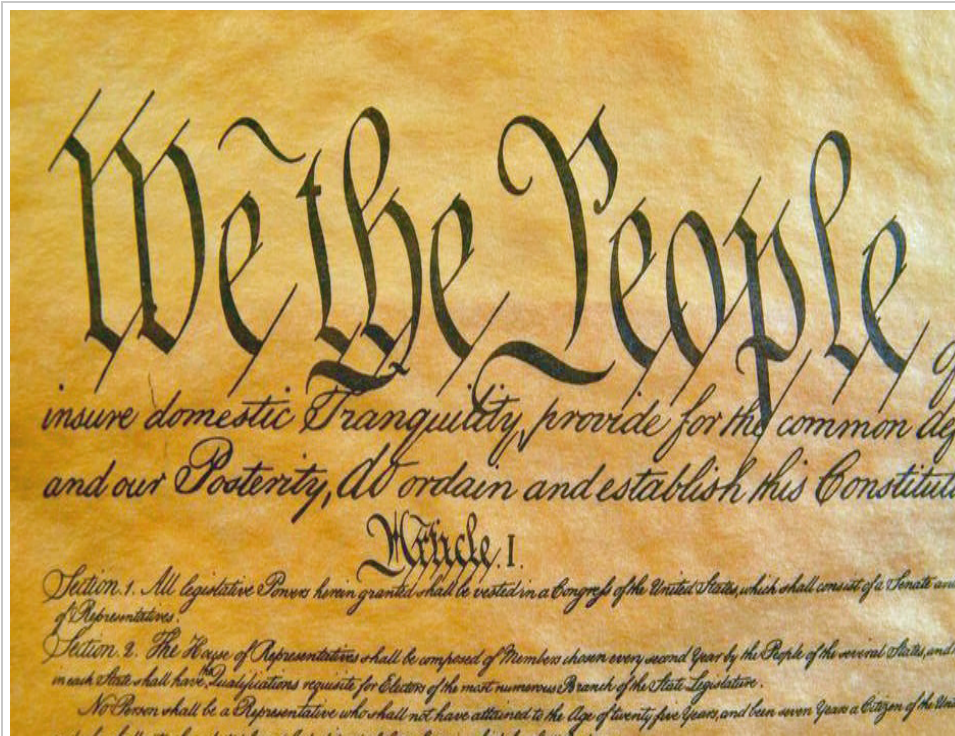 We the People of
insure domestic Tranquility, provide for the common def
and our Posterity, do ordain and establish this Constituti
Article. I.
Section. 1. All legislative Powers herein granted shall be vested in a Congress of the United States, which shall consist of a Senate and
of Representatives.
Section. 2. The House of Representatives shall be composed of Members chosen every second Year by the People of the several States, and
in each State shall have the Qualifications requisite for Electors of the most numerous Branch of the State Legislature.
No Person shall be a Representative who shall not have attained to the Age of twenty five Years, and been seven Years a Citizen of the Unit